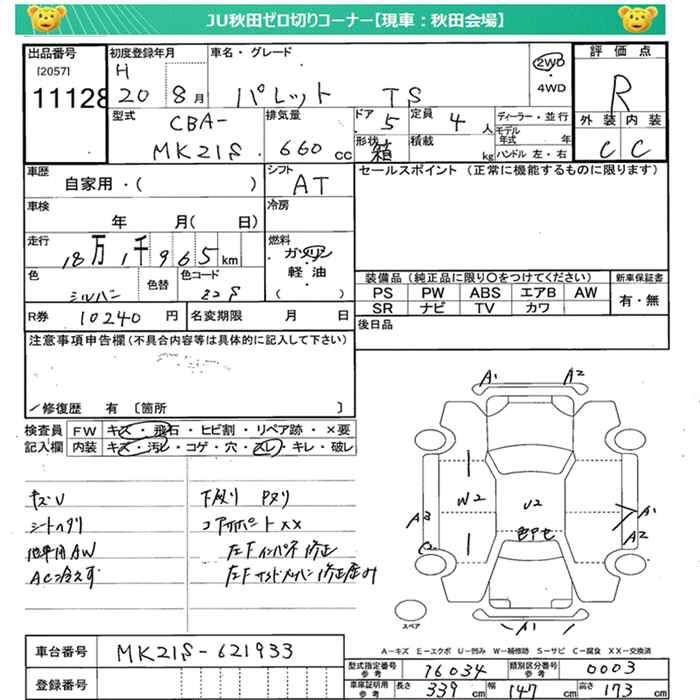 JU秋田ゼロ切りコーナー【現車：秋田会場】
出品番号
[2057]
11128
初度登録年月
H
20 8月
車名・グレード
パレット TS
2WD
・
4WD
評価点
R
外装 内装
C C
型式
CBA-
MK21S
排気量
660 cc
ドア
5
定員
4 人
形状
箱
積載
kg
ディーラー・並行
モデル年式 年
ハンドル 左・右
車歴
自家用・( )
シフト
AT
セールスポイント (正常に機能するものに限ります)
車検
年 月( 日)
冷房
走行
18万1千965km
燃料
ガソリン
・
軽・油
( )
色
シルバー
色替
色コード
Z2S
装備品 (純正品に限り〇をつけてください)
PS PW ABS エアB AW
SR ナビ TV カワ
新車保証書
有・無
R券 10240 円
名変期限 月 日
後日品
注意事項申告欄 (不具合内容等は具体的に記入して下さい)
／修復歴 有 〔箇所 〕
検査員
記入欄
FW キズ・飛石・ヒビ割・リペア跡・×要
内装 キズ・汚レ・コゲ・穴・スレ・キレ・破レ
キズU
シートヘタリ
AC冷えず
下廻り Pヌリ
コアサポート XX
左Fインパネ修正
A1 A2
W2
U2
A3
A1
A2
A1
スペア
A－キズ E－エクボ U－凹み W－補修跡 S－サビ C－腐食 XX－交換済
車台番号 MK21S-621933
登録番号
型式指定番号
参考
16034
類別区分番号
参考
0003
車庫証明用
参考
長さ 339 cm 幅 147 cm 高さ 173 cm